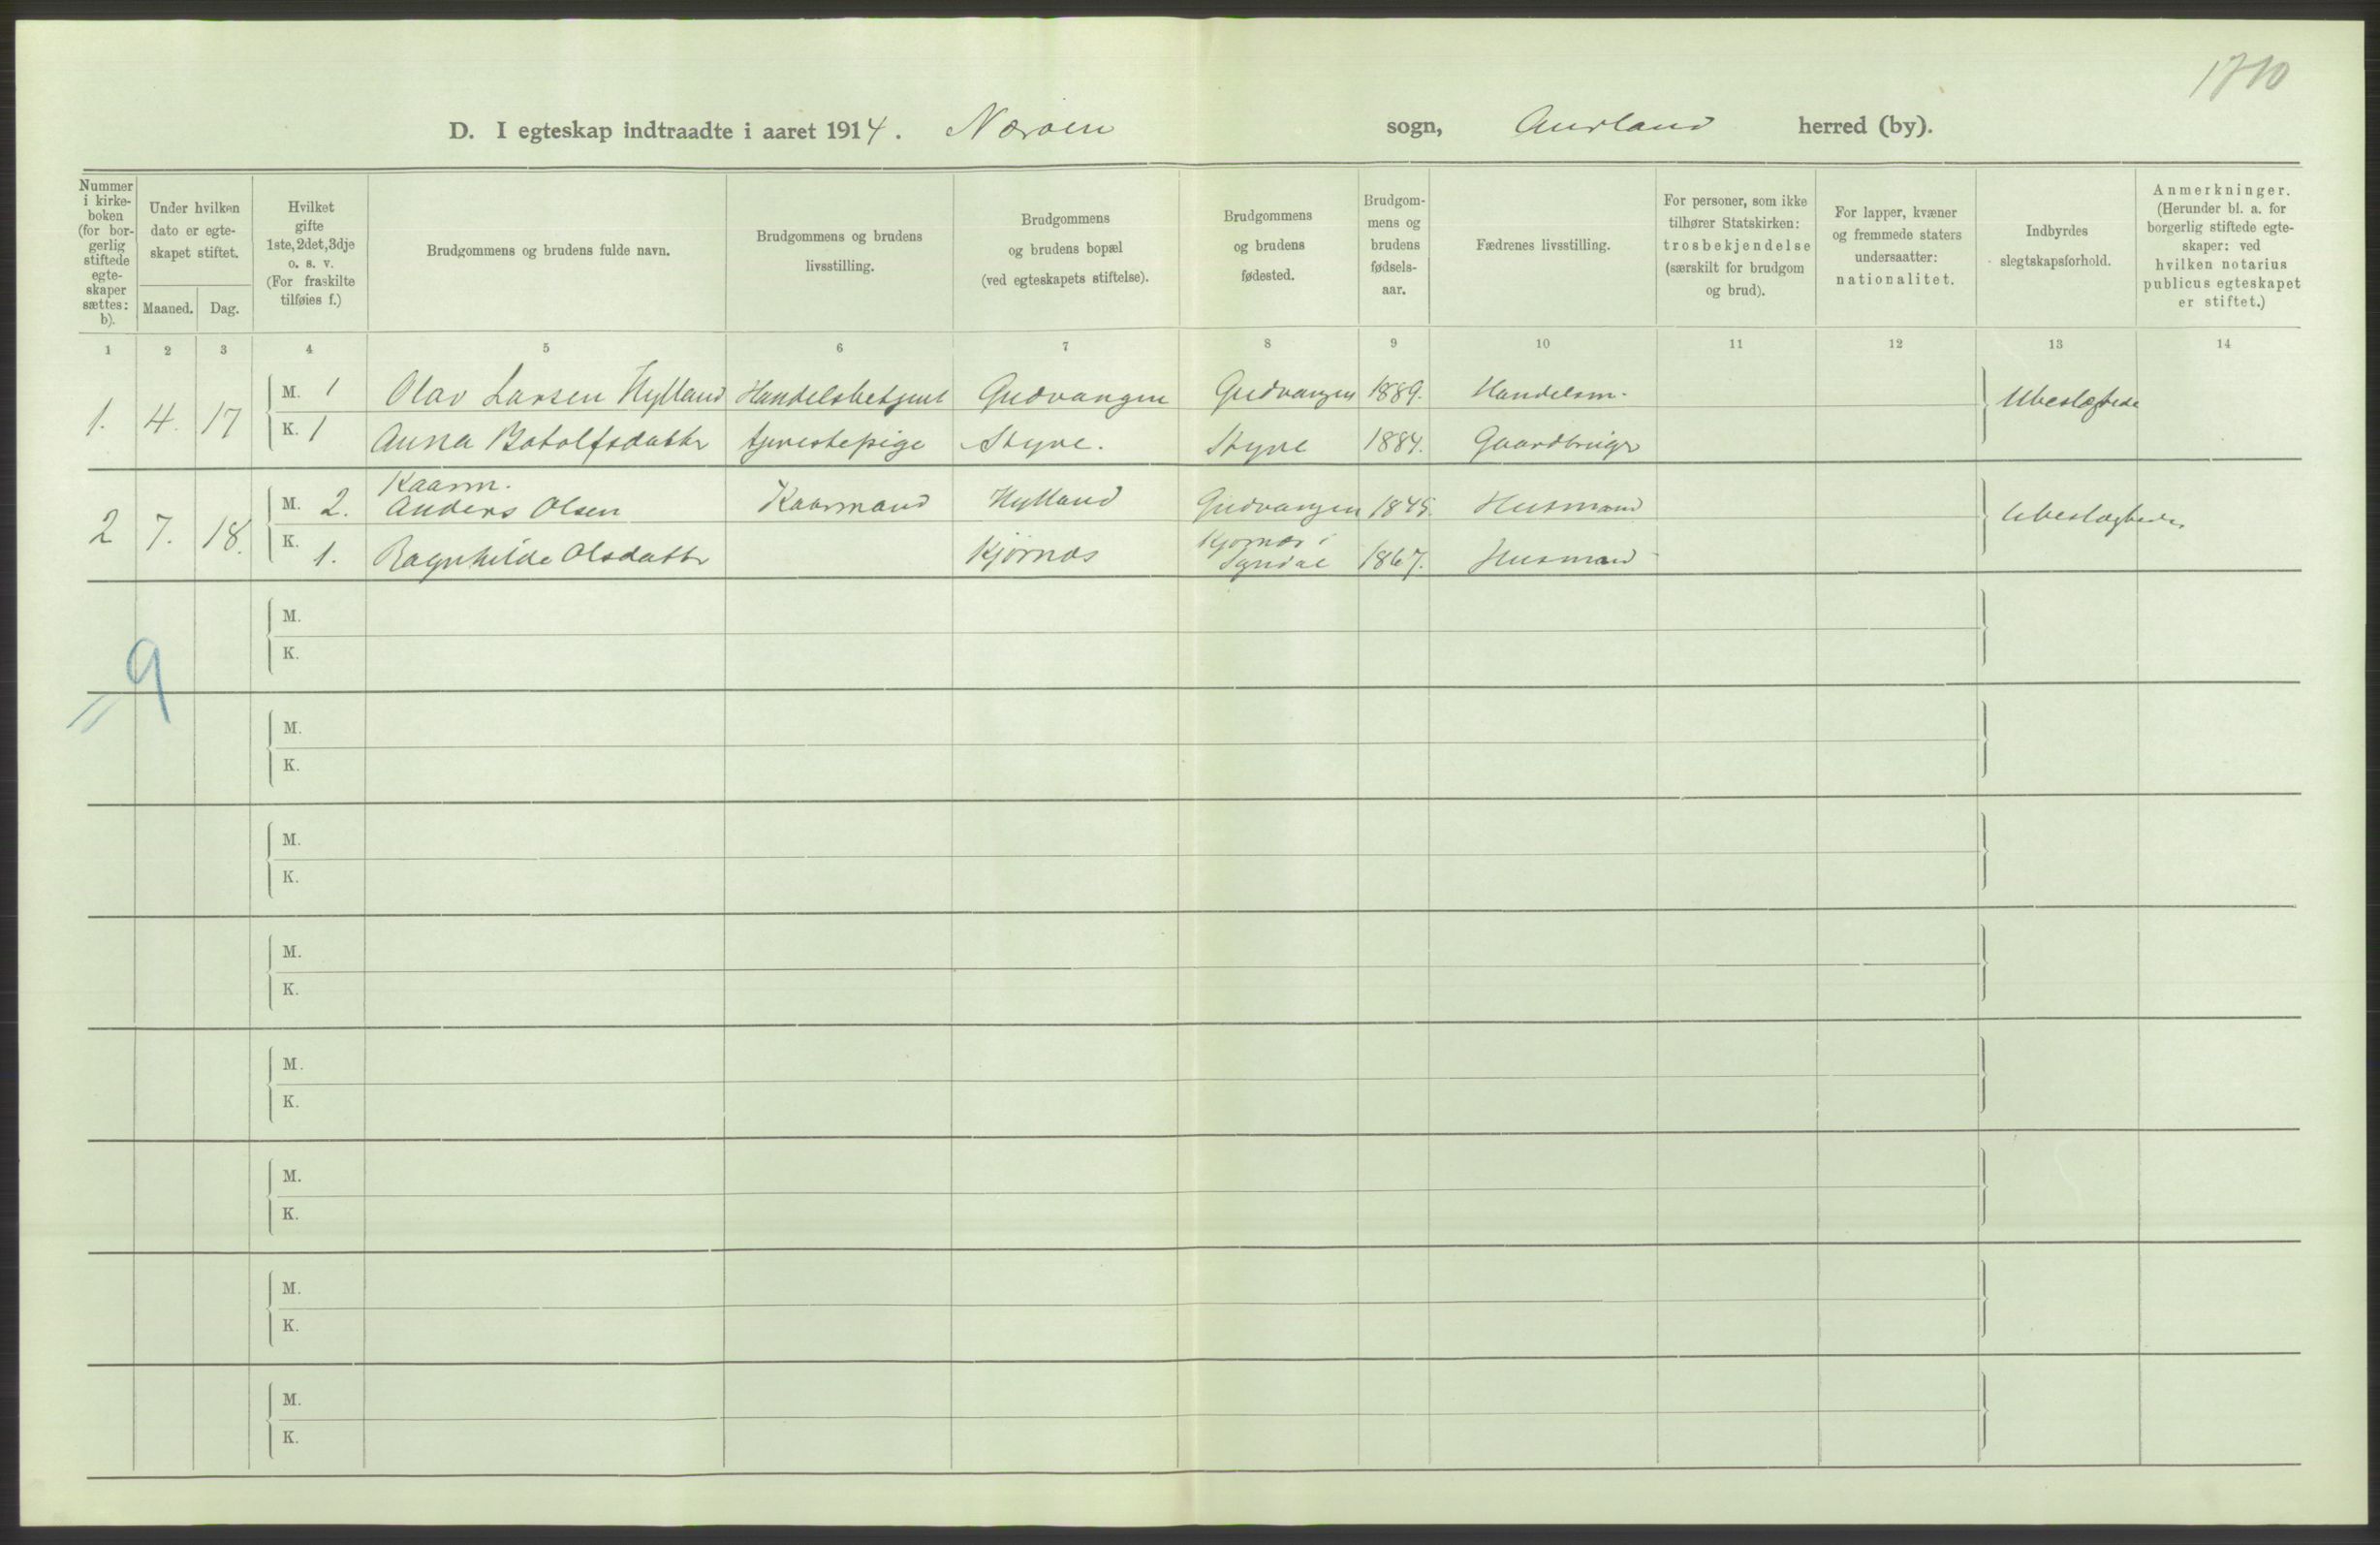 1710
D. I egteskap indtraadte i aaret 1914. Nærøen sogn, Aurland herred (by).
Nummer i kirke-boken (for bor-gerlig stiftede egte-skaper sættes: b).
Under hvilken dato er egte-skapet stiftet.
Maaned. Dag.
Hvilket gifte 1ste, 2det, 3dje o. s. v. (For fraskilte tilføies f.)
Brudgommens og brudens fulde navn.
Brudgommens og brudens livsstilling.
Brudgommens og brudens bopæl (ved egteskapets stiftelse).
Brudgommens og brudens fødested.
Brudgom-mens og brudens fødsels-aar.
Fædrenes livsstilling.
For personer, som ikke tilhører Statskirken: trosbekjendelse (særskilt for brudgom og brud).
For lapper, kvæner og fremmede staters undersaatter: nationalitet.
Indbyrdes slegtskapsforhold.
Anmerkninger. (Herunder bl. a. for borgerlig stiftede egte-skaper: ved hvilken notarius publicus egteskapet er stiftet.)
1 2 3 4 5 6 7 8 9 10 11 12 13 14
1. 4. 17 M. 1 Olav Larsen Hylland Handelsbetjent Gudvangen Gudvangen 1889. Handelsm. Ubeslægtede
K. 1 Anna Botolfsdatter tjenestepige Styve. Styve 1884. Gaardbruger
Kaarm.
2 7. 18. M. 2. Anders Olsen Kaarmand Hylland Gudvangen 1845. Husmand Ubeslægtede.
K. 1. Ragnhilde Olsdatter Kjørnæs Kjørnæs i Sgndal 1867. Husmand
M.
K.
9
M.
K.
M.
K.
M.
K.
M.
K.
M.
K.
M.
K.
M.
K.